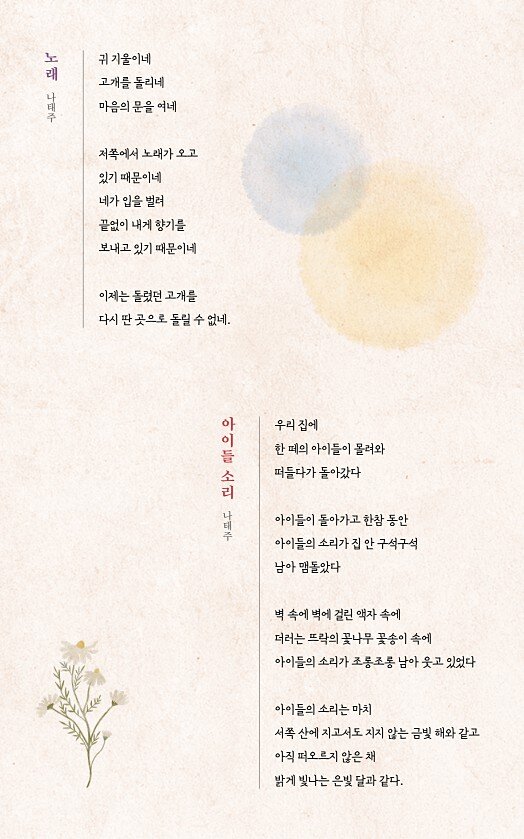 노래
나태주
귀 기울이네
고개를 돌리네
마음의 문을 여네
저쪽에서 노래가 오고
있기 때문이네
네가 입을 벌려
끝없이 내게 향기를
보내고 있기 때문이네
이제는 돌렸던 고개를
다시 딴 곳으로 돌릴 수 없네.
아이들 소리
나태주
우리 집에
한 떼의 아이들이 몰려와
떠들다가 돌아갔다
아이들이 돌아가고 한참 동안
아이들의 소리가 집 안 구석구석
남아 맴돌았다
벽 속에 벽에 걸린 액자 속에
더러는 뜨락의 꽃나무 꽃송이 속에
아이들의 소리가 조롱조롱 남아 웃고 있었다
아이들의 소리는 마치
서쪽 산에 지고서도 지지 않는 금빛 해와 같고
아직 떠오르지 않은 채
밝게 빛나는 은빛 달과 같다.